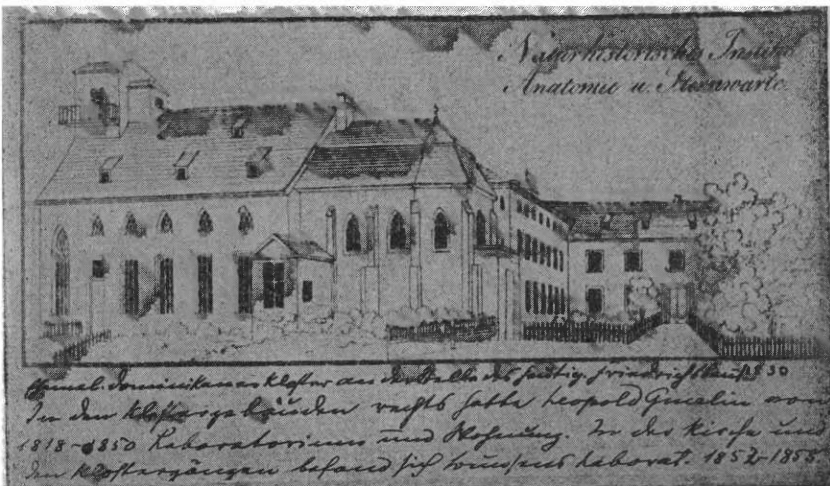 Naturhistorisches Institut
Anatomie u. Sternwarte.
Ehemal. Dominikanerkloster an der Stelle des heutig. Friedrichsbau 1830
In den Klostergebäuden rechts hatte Leopold Gmelin von
1818-1850 Laboratorium und Wohnung. In der Kirche und
den Klostergängen befand sich Bunsens Laborat. 1852-1855